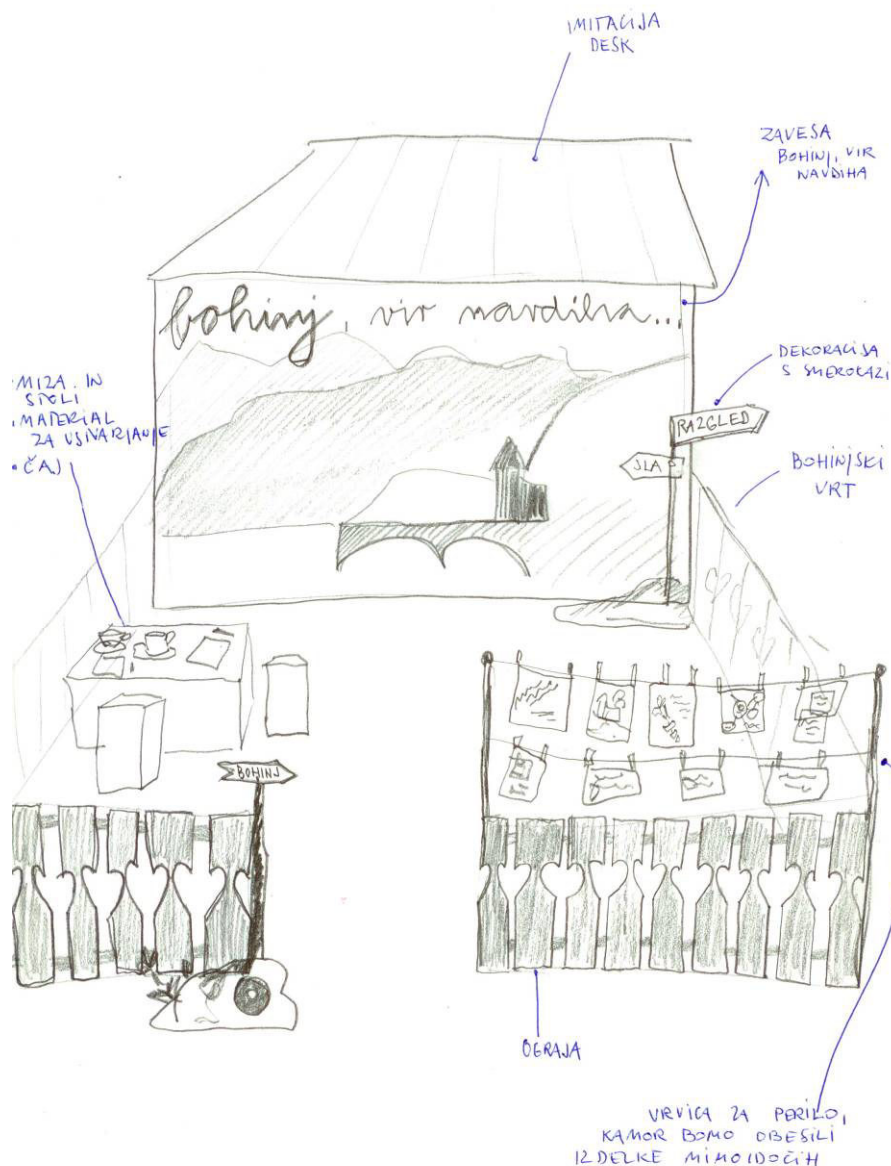 IMITACIJA
DESK
ZAVESA
BOHINJ, VIR
NAVDIHA
bohinj, vir navdiha...
DEKORACIJA
S SMEROKAZI
RAZGLED
JLA
BOHINJSKI
VRT
• MIZA IN
STOLI
• MATERIAL
ZA USTVARJANJE
• ČAJ
BOHINJ
OGRAJA
VRVICA ZA PERILO,
KAMOR BOMO OBESILI
IZDELKE MIMOIDOČIH